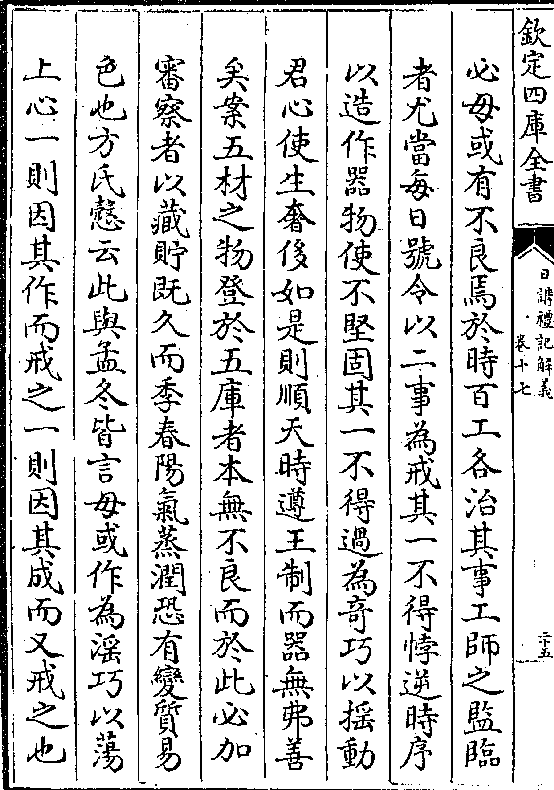 欽定四庫全書
日講禮記解義
卷十七
二十五
必毋或有不良焉於時百工各治其事工師之監臨
者尤當每日號令以二事為戒其一不得悖逆時序
以造作器物使不堅固其一不得過為奇巧以揺動
君心使生奢侈如是則順天時遵王制而器無弗善
矣案五材之物登於五庫者本無不良而於此必加
審察者以藏貯既久而季春陽氣蒸潤恐有變質易
色也方氏慤云此與孟冬皆言毋或作為淫巧以蕩
上心一則因其作而戒之一則因其成而又戒之也